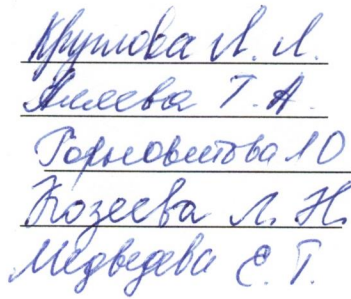 Круглова Л. Л.
Аляева Т. А.
Горновитова Л О
Козеева Л. Н.
Медведева Е. Т.